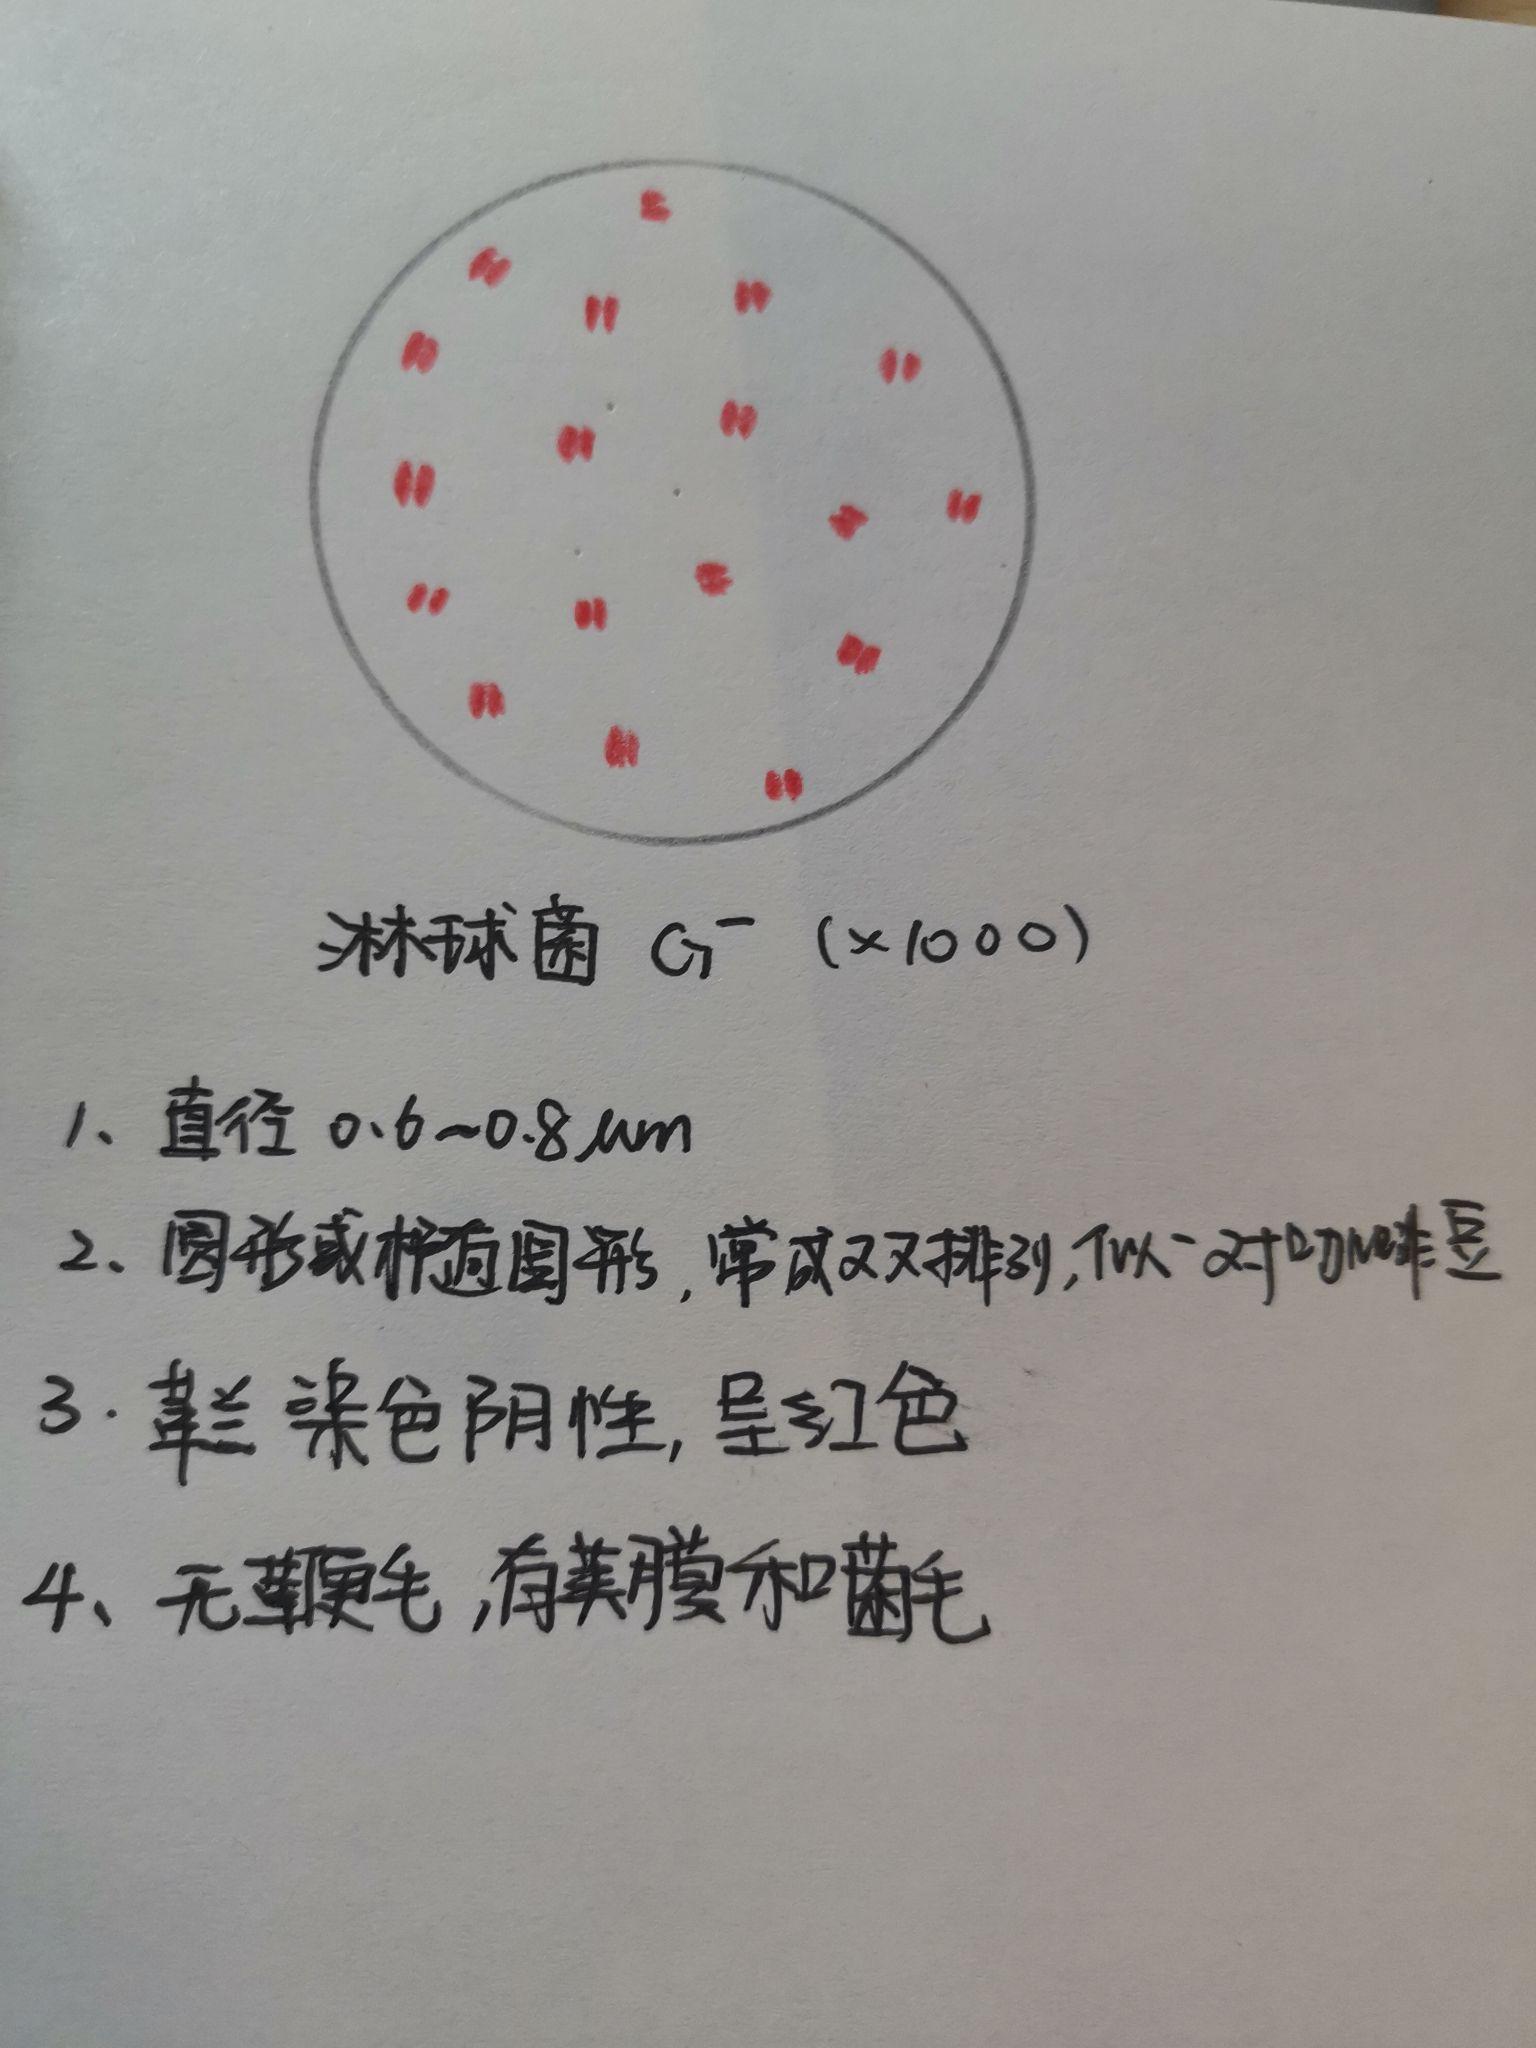 淋球菌 G⁻ (×1000)
1、直径 0.6~0.8μm
2、圆形或椭圆形,常成双排列,似一对咖啡豆
3.革兰染色阴性,呈红色
4、无鞭毛,有荚膜和菌毛